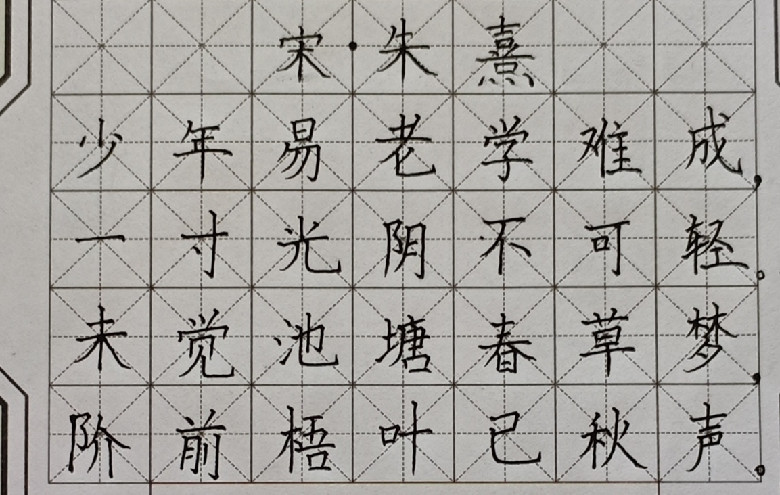 宋·朱熹
少年易老学难成，
一寸光阴不可轻。
未觉池塘春草梦，
阶前梧叶己秋声。